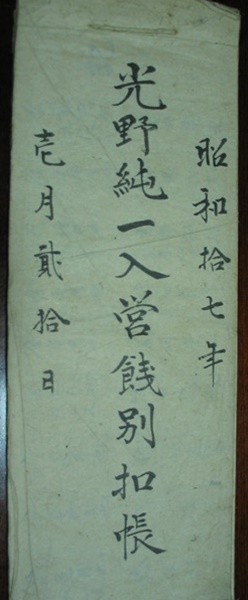 昭和拾七年
光野純一入営餞別扣帳
壱月貳拾日